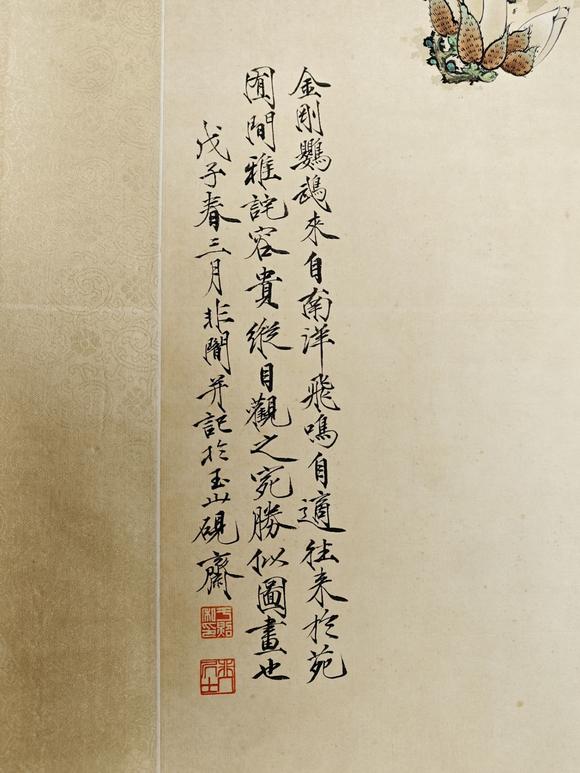 金剛鸚鵡來自南洋飛鳴自適往来於苑
囿間雅詫容貴縱目觀之宛勝似圖畫也
戊子春三月非闇并記於玉山硯齋